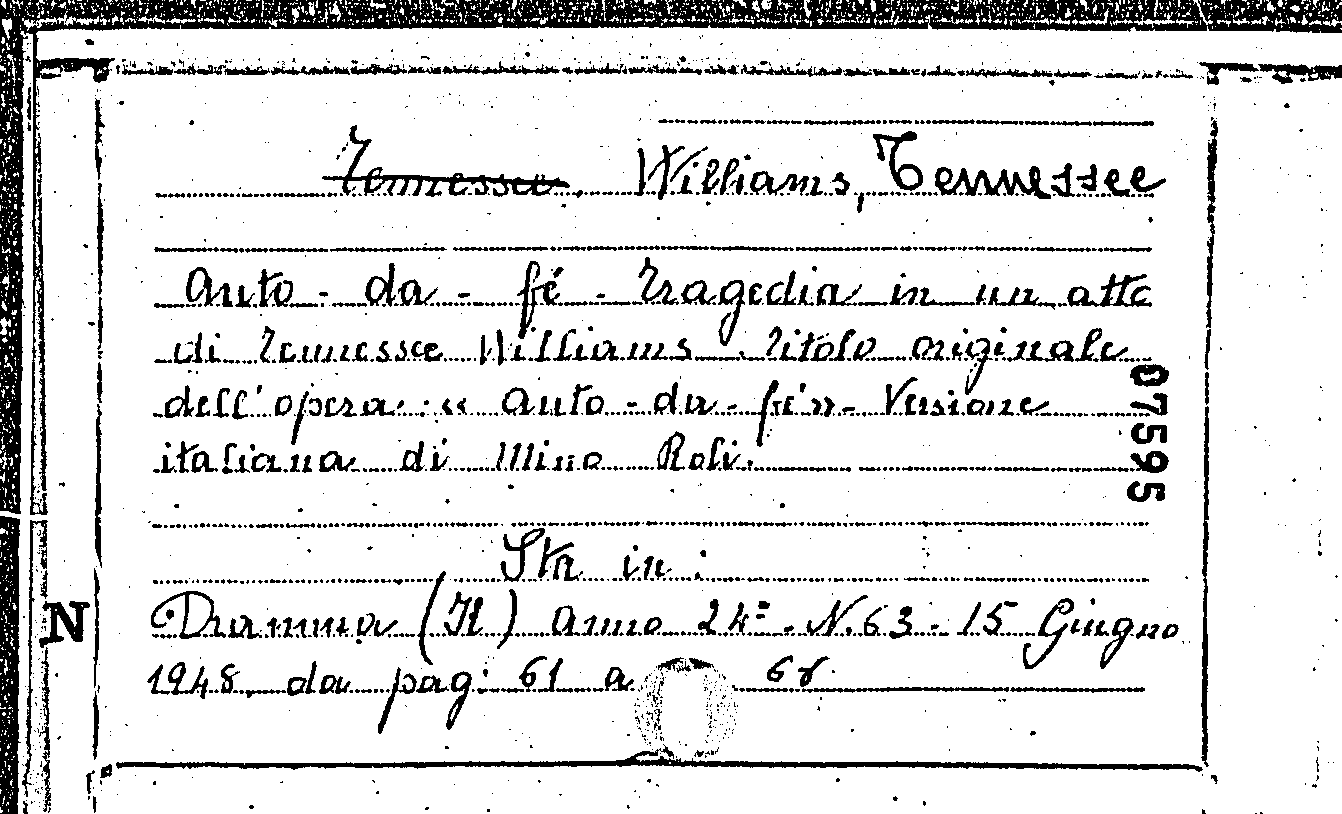 ~~Tennessee~~. Williams, Tennessee
Auto - da - fé - Tragedia in un atto
di Tennessee Williams. Titolo originale
dell'opera: « Auto - da - fé» - Versione
italiana di Mino Roli.
07595
Sta in:
N
Dramma (Il) Anno 24º - N. 63 - 15 Giugno
1948. da pag: 61 a 68